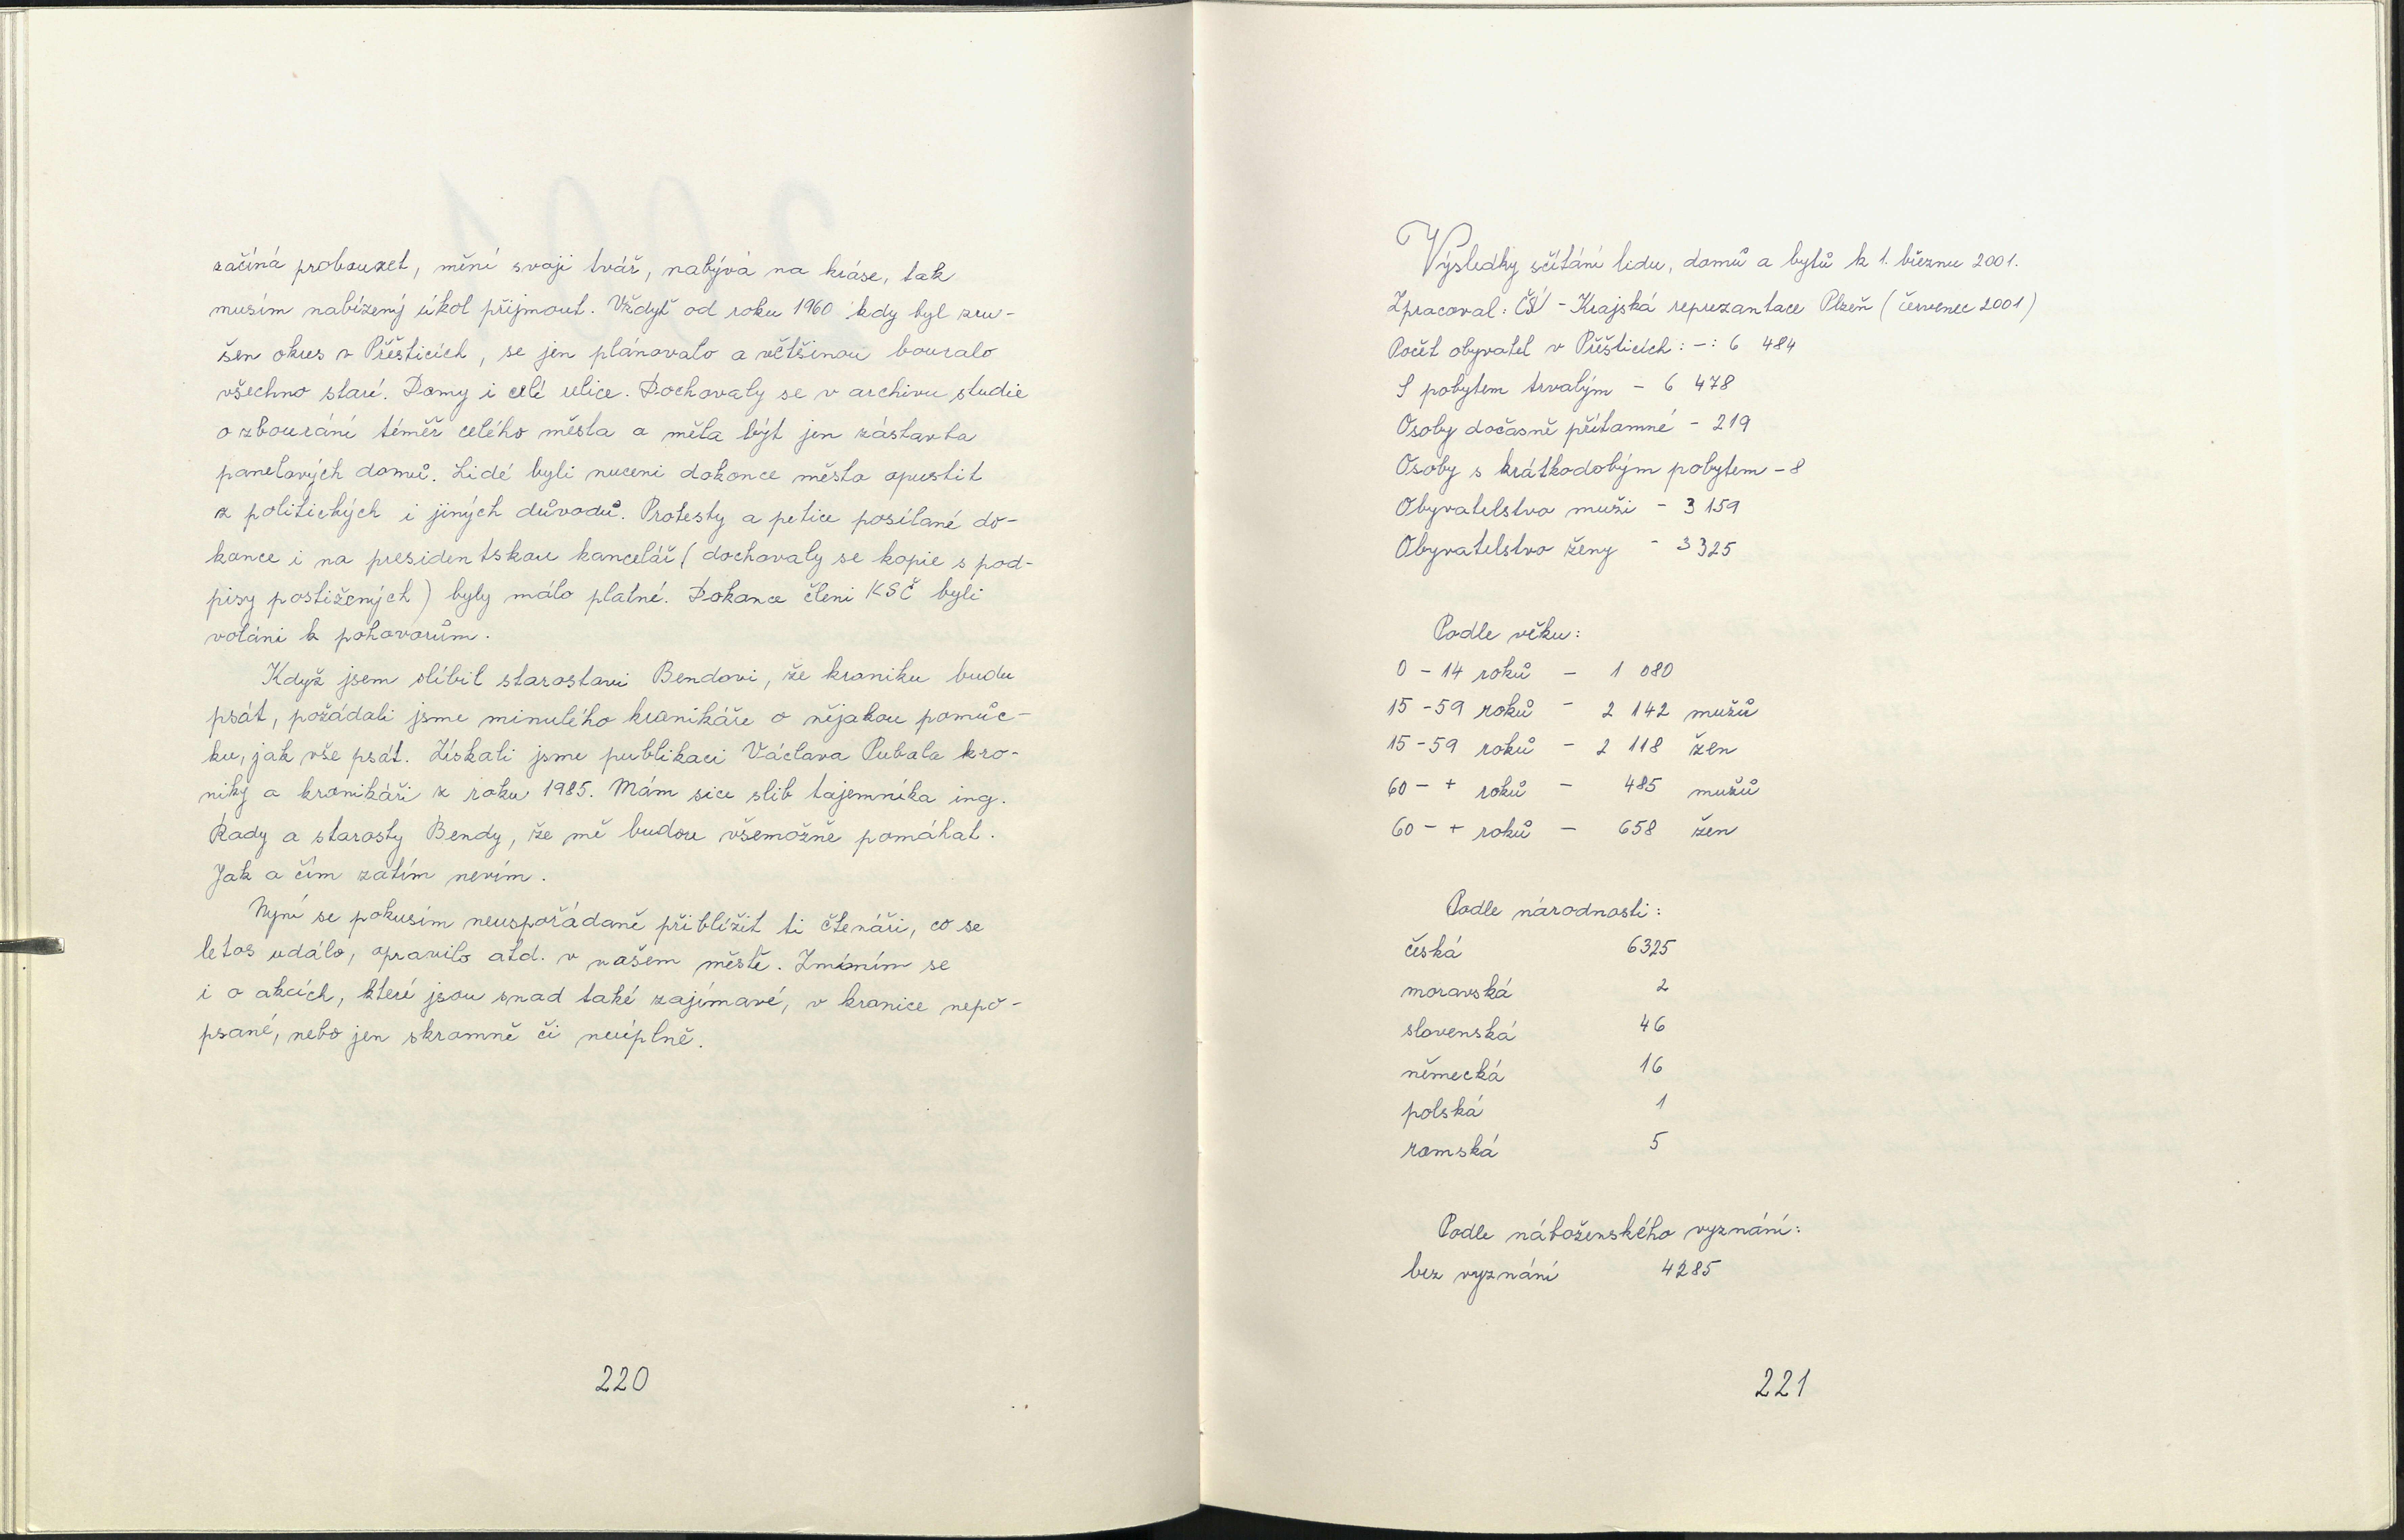 začíná probouzet, mění svoji tvář, nabývá na kráse, tak
musím nabízený úkol přijmout. Vždyť od roku 1960 kdy byl zru-
šen okres v Přešticích, se jen plánovalo a většinou bouralo
všechno staré. Domy i celé ulice. Dochovaly se v archivu studie
o zbourání téměř celého města a měla být jen zástavba
panelových domů. Lidé byli nuceni dokonce města opustit
z politických i jiných důvodů. Protesty a petice posílané do-
konce i na presidentskou kancelář (dochovaly se kopie s pod-
pisy postižených) byly málo platné. Dokonce členi KSČ byli
voláni k pohovorům.
Když jsem slíbil starostovi Bendovi, že kroniku budu
psát, požádali jsme minulého kronikáře o nějakou pomůc-
ku, jak vše psát. Získali jsme publikaci Václava Pubala kro-
niky a kronikáři z roku 1985. Mám sice slib tajemníka ing.
Rady a starosty Bendy, že mě budou všemožně pomáhat.
Jak a čím zatím nevím.
Nyní se pokusím neuspořádaně přiblížit ti čtenáři, co se
letos událo, opravilo atd. v našem městě. Zmíním se
i o akcích, které jsou snad také zajímavé, v kronice nepo-
psané, nebo jen skromně či neúplně.
220
Výsledky sčítání lidu, domů a bytů k 1. březnu 2001.
Zpracoval: ČSÚ - Krajská reprezantace Plzeň (červenec 2001)
Počet obyvatel v Přešticích: -: 6 484
S pobytem trvalým - 6 478
Osoby dočasně přítomné - 219
Osoby s krátkodobým pobytem - 8
Obyvatelstvo muži - 3 159
Obyvatelstvo ženy - 3 325
Podle věku:
0 - 14 roků - 1 080
15 - 59 roků - 2 142 mužů
15 - 59 roků - 2 118 žen
60 - + roků - 485 mužů
60 - + roků - 658 žen
Podle národnosti:
česká 6325
moravská 2
slovenská 46
německá 16
polská 1
romská 5
Podle náboženského vyznání:
bez vyznání 4285
221